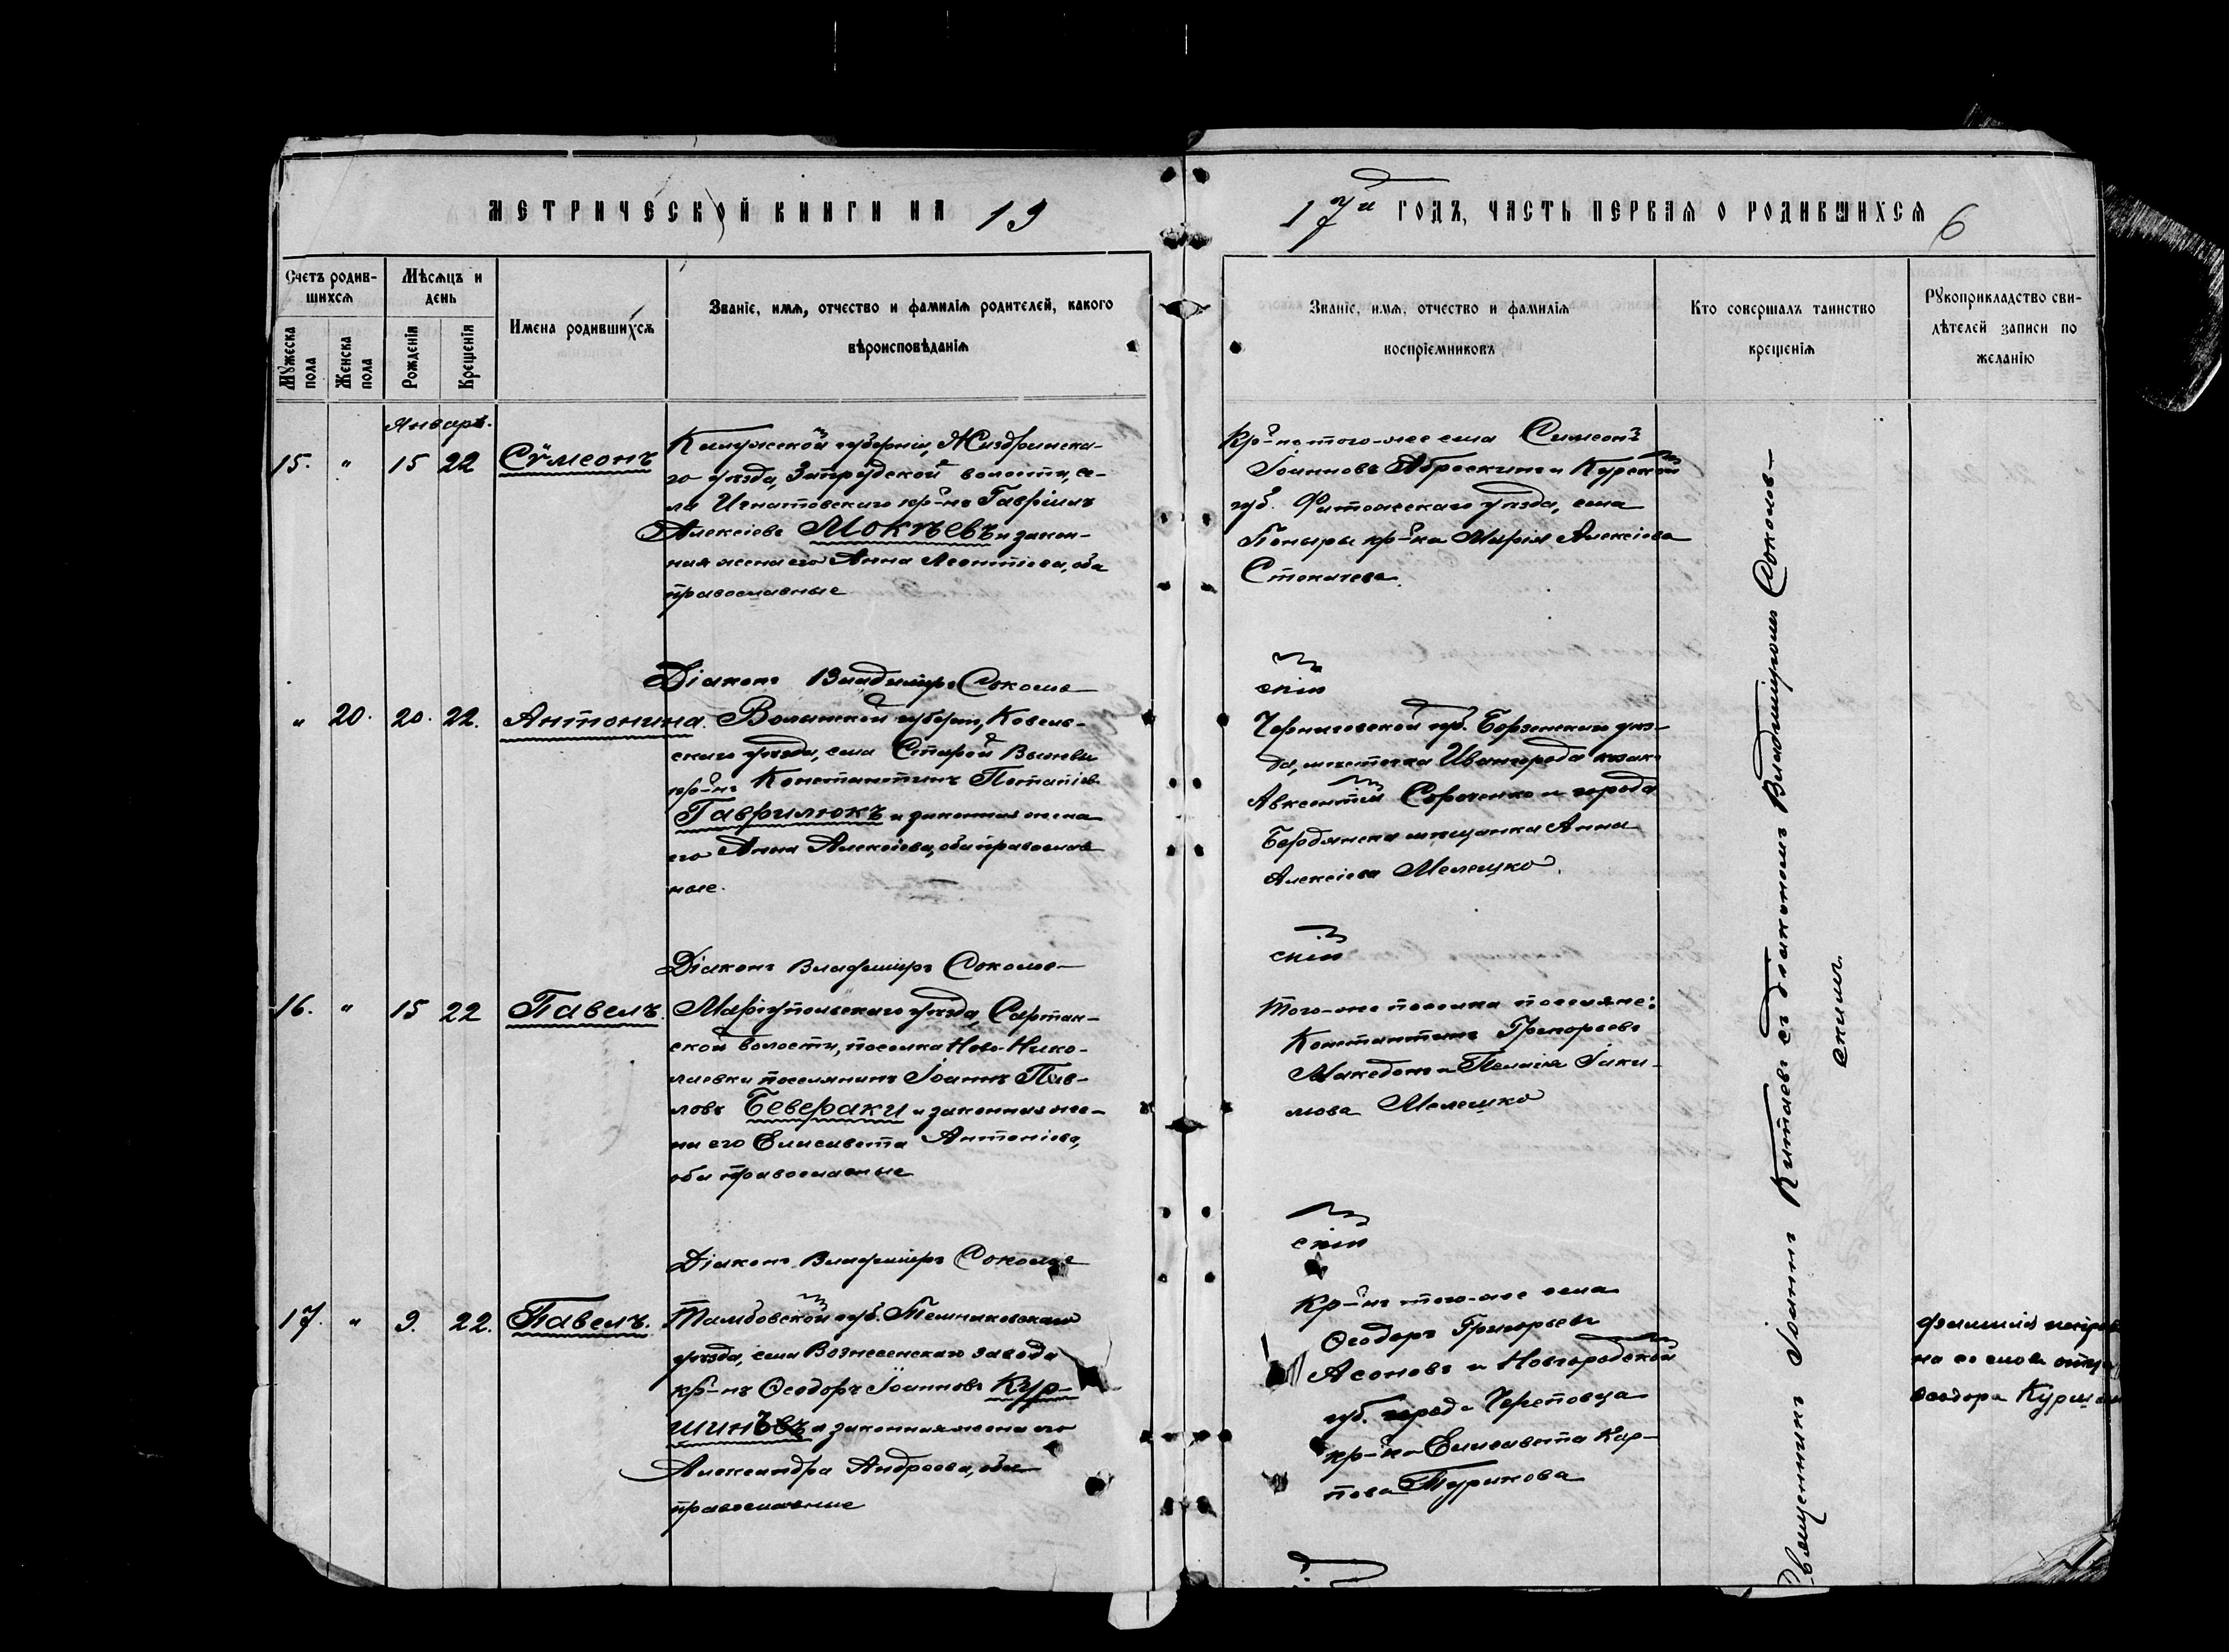 МЕТРИЧЕСКОЙ КНИГИ НА 19
17й ГОДЪ, ЧАСТЬ ПЕРВАЯ О РОДИВШИХСЯ
6
Счетъ родив-
шихся
Мужеска
пола
Женска
пола
Мѣсяцъ и
день
Рожденія
Крещенія
Имена родившихся
Званіе, имя, отчество и фамилія родителей, какого
вѣроисповѣданія
Званіе, имя, отчество и фамилія
воспріемниковъ
Кто совершалъ таинство
крещенія
Рукоприкладство сви-
дѣтелей записи по
желанію
Январь.
15. " 15 22 Сѵмеонъ
Калужской губерніи, Жиздринска-
го уѣзда, Запрудской волости, се-
ла Игнатовскаго кр-нъ Гавріилъ
Алексіевъ Мокѣевъ и закон-
ная жена его Анна Леонтіева, оба
православные
Кр-не того-же села Симеонъ
Іоанновъ Аброскинъ и Курской
губ. Фатежскаго уѣзда, села
Поныры кр-ка Марія Алексіева
Стокачева.
Діаконъ Владиміръ Соколов-
скій
" 20. 20. 22. Антонина.
Волынской губерніи, Ковель-
скаго уѣзда, села Старой Выжвы
кр-нъ Константинъ Потапіевъ
Гаврилюкъ и законная жена
его Анна Алексіева, оба православ
ные.
Черниговской губ. Борзенскаго уѣз-
да, мѣстечка Ивангорода козакъ
Авксентій Сороченко и города
Бердянска мѣщанка Анна
Алексіева Мелешко.
Діаконъ Владиміръ Соколов-
скій
16. " 15 22 Павелъ.
Маріупольскаго уѣзда, Сартан-
ской волости, поселка Ново-Нико-
лаевки поселянинъ Іоаннъ Пав-
ловъ Бевераки и законная же-
на его Елисавета Антоніева,
оба православные
Того-же поселка поселяне:
Константинъ Григорьевъ
Македонъ и Пелагія Іаки-
мова Мелешко
Діаконъ Владиміръ Соколов
скій
17. " 9. 22. Павелъ.
Тамбовской губ. Темниковскаго
уѣзда, села Вознесенскаго завода
кр-нъ Ѳеодоръ Іоанновъ Кур-
шинъ и законная жена его
Александра Андреева, оба
православные
Кр-нъ того-же села
Ѳеодоръ Григорьевъ
Асоновъ и Новгородской
губ. города Череповца
кр-ка Елисавета Кар-
пова Турикова
Священникъ Іоаннъ Китаевъ съ діакономъ Владиміромъ Соколов-
скимъ.
фамилія исправ
на со словъ отца
Ѳеодора Куршина